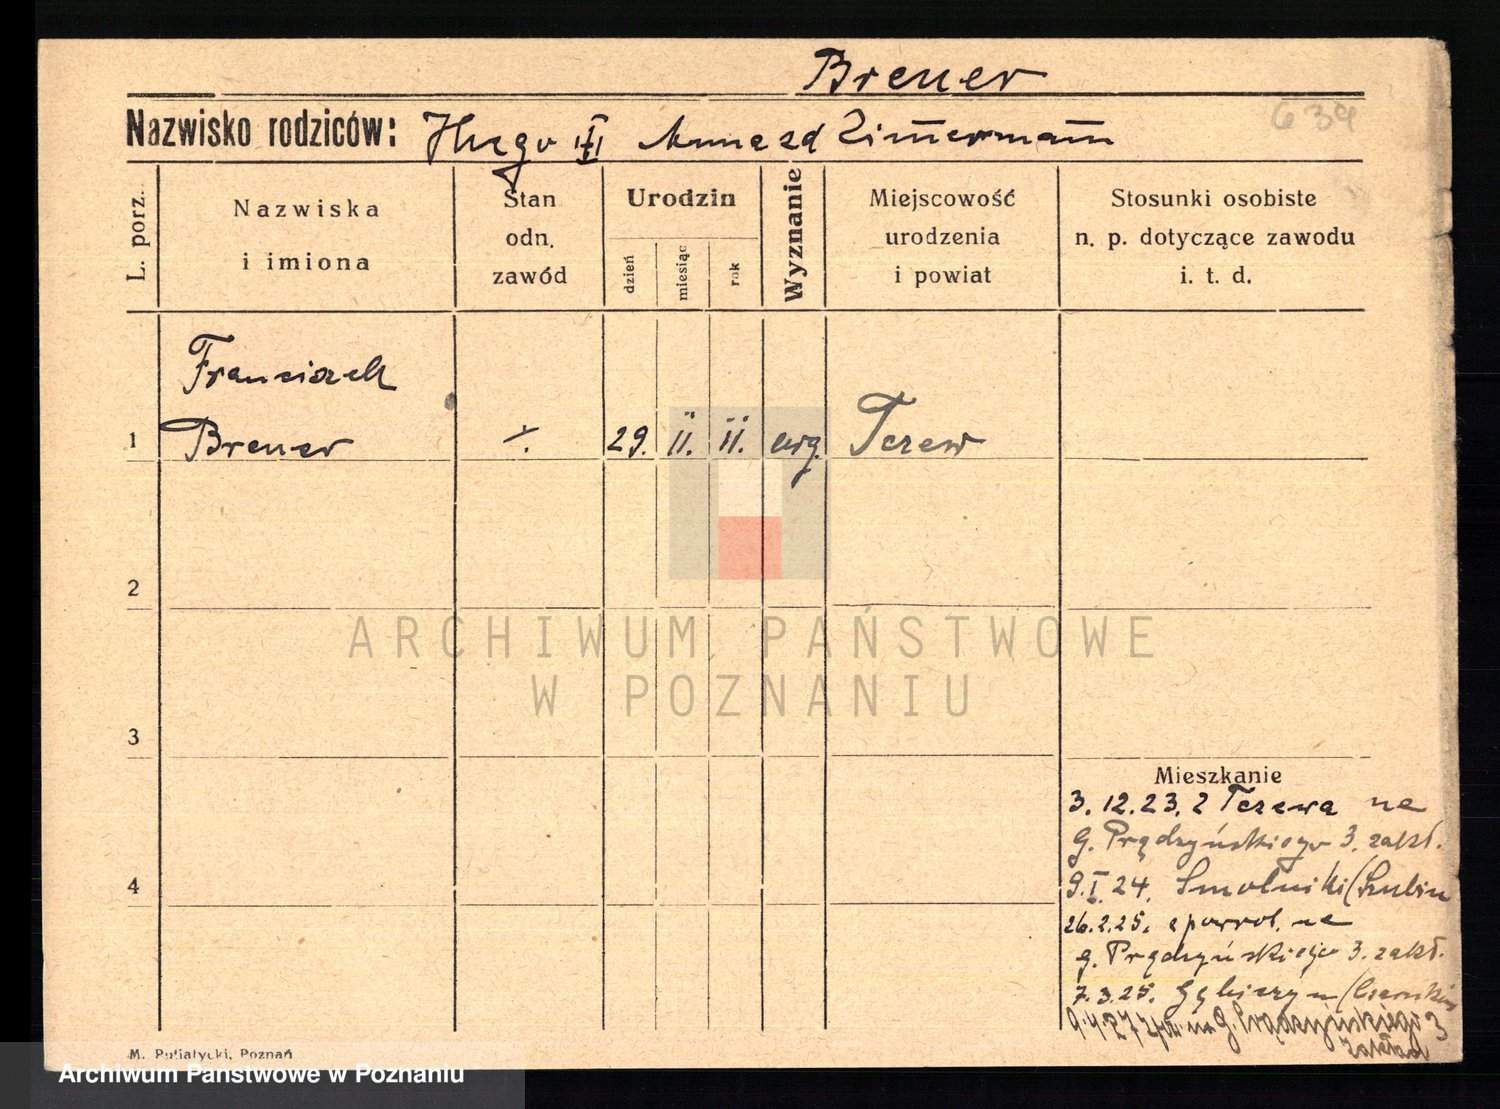 Brener
639
Nazwisko rodziców: Hugo i Anna zd Zimermann
L. porz.
Nazwiska
i imiona
Stan
odn.
zawód
Urodzin
dzień
miesiąc
rok
Wyznanie
Miejscowość
urodzenia
i powiat
Stosunki osobiste
n. p. dotyczące zawodu
i. t. d.
Franciszek
1 Brener 29. 11. 11. ewg. Tczew
2
ARCHIWUM PAŃSTWOWE
W POZNANIU
3
Mieszkanie
3.12.23. z Tczewa na
G. Prądzyńskiego 3. zakł.
4
9.I.24. Smolniki (Szubin
26.2.25. z powrot. na
g. Prądzyńskiego 3. zakł.
7.3.25.
9.4.27 na G. Prądzyńskiego 3
zakład
M. Putiatycki, Poznań
Archiwum Państwowe w Poznaniu